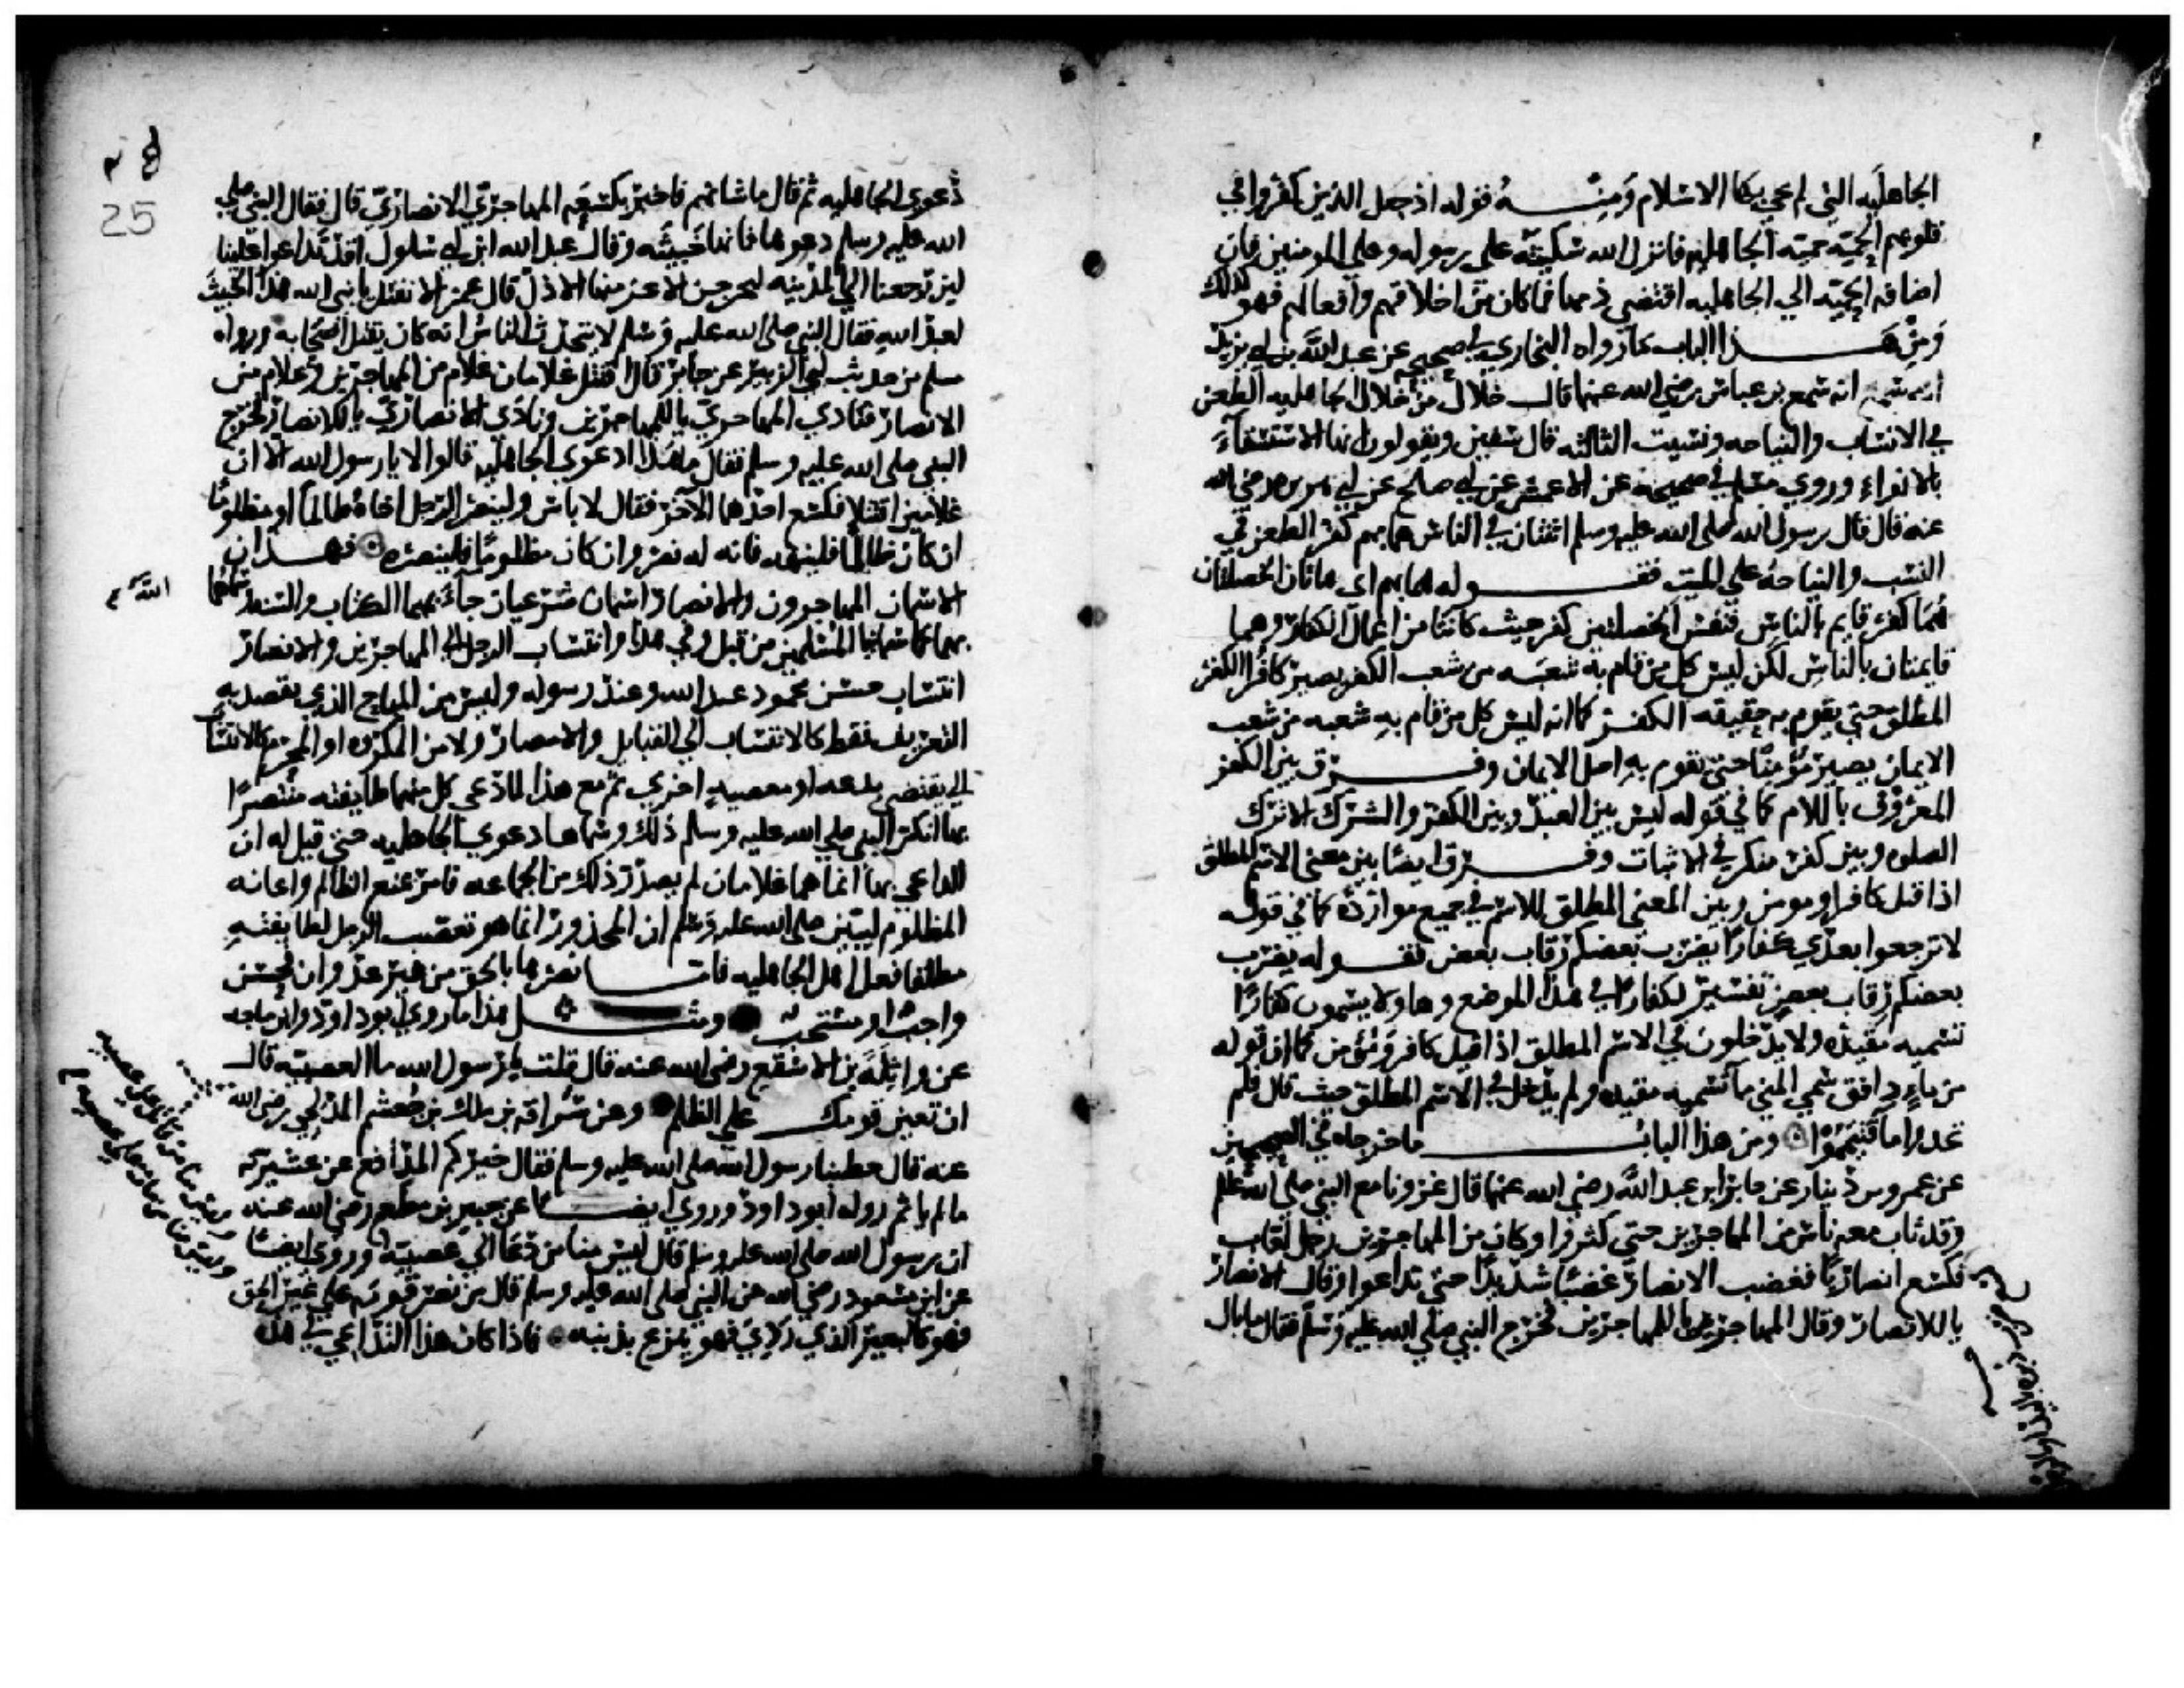 الجاهليه التي لم يجي بها الاسلام ومنه قوله اذ جعل الذين كفروا في
قلوبهم الحميه حميه الجاهليه فانزل الله سكينته على رسوله وعلى المومنين فان
اضافه الحميه الي الجاهليه اقتضى ذمها فما كان من اخلاقهم وافعالهم فهو كذلك
ومن هذا الباب ما رواه البخاري في صحيحه عن عبد الله بن ابي يزيد
انه سمع بن عباس رضي الله عنهما قال خلال من خلال الجاهليه الطعن
في الانساب والنياحه ونسيت الثالثه قال سفين ويقولون انها الاستسقاء
بالانواء وروي مسلم في صحيحه عن الاعمش عن ابي صالح عن ابي هريره رضي الله
عنه قال قال رسول الله صلى الله عليه وسلم اثنتان في الناس هما بهم كفر الطعن في
النسب والنياحه على الميت فقوله هما بهم اي هاتان الخصلتان
هما كفر قايم بالناس فنفس الخصلتين كفر حيث كانتا من اعمال الكفار وهما
قايمتان بالناس لكن ليس كل من قام به شعبه من شعب الكفر يصير كافرا الكفر
المطلق حتي يقوم به حقيقه الكفر كما انه ليس كل من قام به شعبه من شعب
الايمان يصير مؤمنا حتى يقوم به اصل الايمان وفرق بين الكفر
المعروف باللام كما في قوله ليس بين العبد وبين الكفر والشرك الا ترك
الصلوه وبين كفر منكر في الاثبات وفرق ايضا بين معنى الاسم المطلق
اذا قيل كافر او مومن وبين المعنى المطلق للاسم في جميع موارده كما في قوله
لا ترجعوا بعدي كفارا يضرب بعضكم رقاب بعض فقوله يضرب
بعضكم رقاب بعض تفسير لكفارا في هذا الموضع وهاولا يسمون كفارا
تسميه مقيده ولا يدخلون في الاسم المطلق اذا قيل كافر ومؤمن كما ان قوله
من ماء دافق سمي المني ماء تسميه مقيده ولم يدخل في الاسم المطلق حيث قال فلم
تجدوا ماء فتيمموا ومن هذا الباب ما خرجاه في الصحيحين
عن عمرو بن دينار عن جابر ابن عبد الله رضي الله عنهما قال غزونا مع النبي صلى الله عليه وسلم
وقد ثاب معه ناس من المهاجرين حتى كثروا وكان من المهاجرين رجل لعاب
فكسع انصاريا فغضب الانصاري غضبا شديدا حتى تداعوا وقال الانصاري
يا للانصار وقال المهاجري يا للمهاجرين فخرج النبي صلى الله عليه وسلم فقال ما بال
دعوى الجاهليه ثم قال ما شانهم فاخبر بكسعه المهاجري الانصاري قال فقال النبي صلى
الله عليه وسلم دعوها فانها خبيثه وقال عبد الله ابن ابي سلول اقد تداعوا علينا
لين رجعنا الي المدينه ليخرجن الاعز منها الاذل قال عمر الا نقتل يا نبي الله هذا الخبيث
لعبد الله فقال النبي صلى الله عليه وسلم لا يتحدث الناس انه كان يقتل اصحابه ورواه
مسلم من حديث ابي الزبير عن جابر قال اقتتل غلامان غلام من المهاجرين وغلام من
الانصار فنادي المهاجري يا للمهاجرين ونادى الانصاري يا للانصار فخرج
النبي صلى الله عليه وسلم فقال ما هذا ادعوى الجاهليه قالوا لا يا رسول الله الا ان
غلامين اقتتلا فكسع احدهما الاخر فقال لا باس ولينصر الرجل اخاه ظالما او مظلوما
ان كان ظالما فلينهه فانه له نصر وان كان مظلوما فلينصره فهذان
الاسمان المهاجرون والانصار اسمان شرعيان جاء بهما الكتاب والسنه وسماهما
الله
بهما كما سمانا المسلمين من قبل وفي هذا وانتساب الرجل الي المهاجرين والانصار
انتساب حسن محمود عند الله وعند رسوله وليس من المباح الذي يقصد به
التعريف فقط كالانتساب الي القبايل والامصار ولا من المكروه او المحرم كالانتساب
الي يقتضي بدعه او معصيه اخرى ثم مع هذا لما دعى كل منهما طايفته منتصرا
بها انكر النبي صلى الله عليه وسلم ذلك وسماها دعوي الجاهليه حتى قيل له ان
الداعي بها انما هما غلامان لم يصدر ذلك من الجماعه فامر بمنع الظالم واعانه
المظلوم ليبين صلى الله عليه وسلم ان المحذور انما هو تعصب الرجل لطايفته
مطلقا فعل اهل الجاهليه فاما نصرها بالحق من غير عدوان فحسن
واجب او مستحب ومثل هذا ما روي ابو داود وابن ماجه
عن واثله بن الاسقع رضي الله عنه قال قلت يا رسول الله ما العصبيه قال
ان تعين قومك على الظلم وعن سراقه بن ملك بن جعشم المدلجي رضي الله
عنه قال خطبنا رسول الله صلى الله عليه وسلم فقال خيركم المدافع عن عشيرته
ما لم ياثم رواه ابو داود وروي ايضا عن جبير بن مطعم رضي الله عنه
ان رسول الله صلى الله عليه وسلم قال ليس منا من دعا الي عصبيه وروي ايضا
وليس منا من قاتل على عصبيه
وليس منا من مات على عصبيه
عن ابن مسعود رضي الله عن النبي صلى الله عليه وسلم قال من نصر قومه على غير الحق
فهو كالبعير الذي ردي فهو ينزع بذنبه فاذا كان هذا التداعي في هذه
25